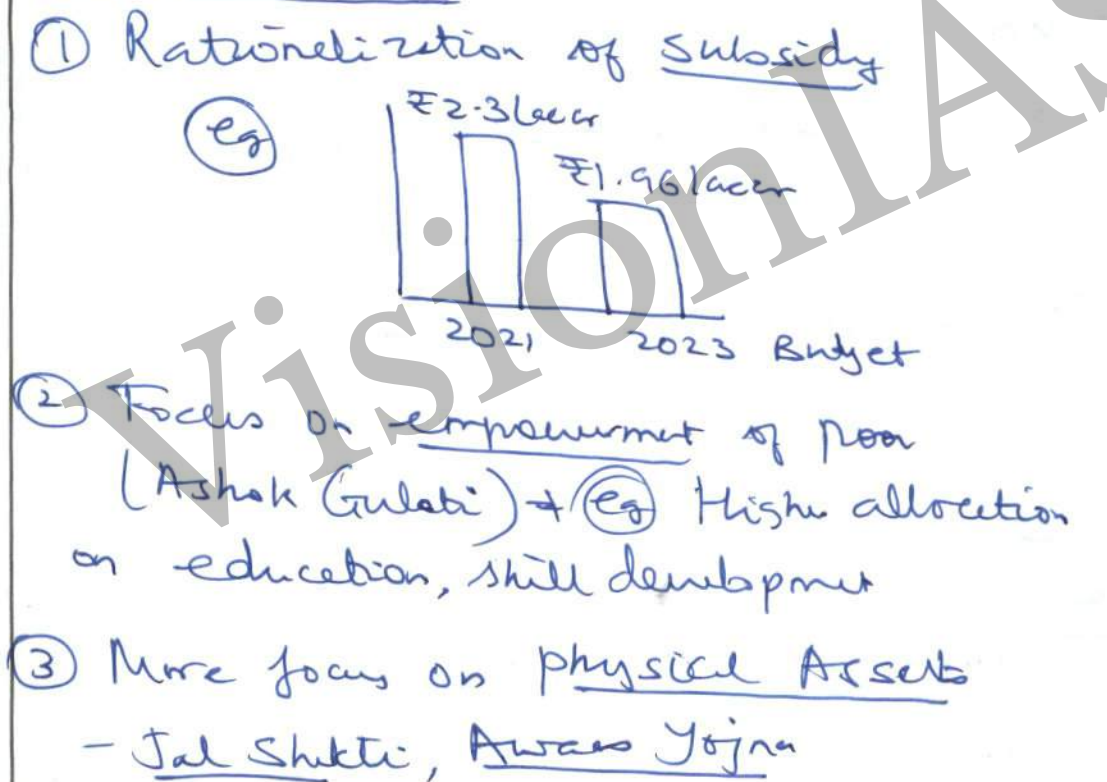 ① Rationalization of subsidy
eg
₹2.3 lacr
₹1.96 lacr
2021 2023 Budget
② Focus on empowerment of poor
(Ashok Gulati) → eg Higher allocation
on education, skill development
③ More focus on physical Assets
- Jal Shakti, Awaas Yojna
VisionIAS